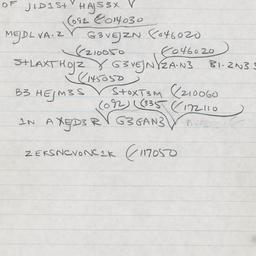 OF JLD1S+ HAJSSX
(092 (014030
MEJDLVA.2 G3VEJZN (046020
(210050 (046020
S+LAXTHOJZ G3VEJN ZA.N3 B1.2N3
(145050
B3 HEJM3S S+OXT3M (210060
(092) (335 (172110
1N A XEJD3R G3GAN3
ZEKSNCVONC1K (117050